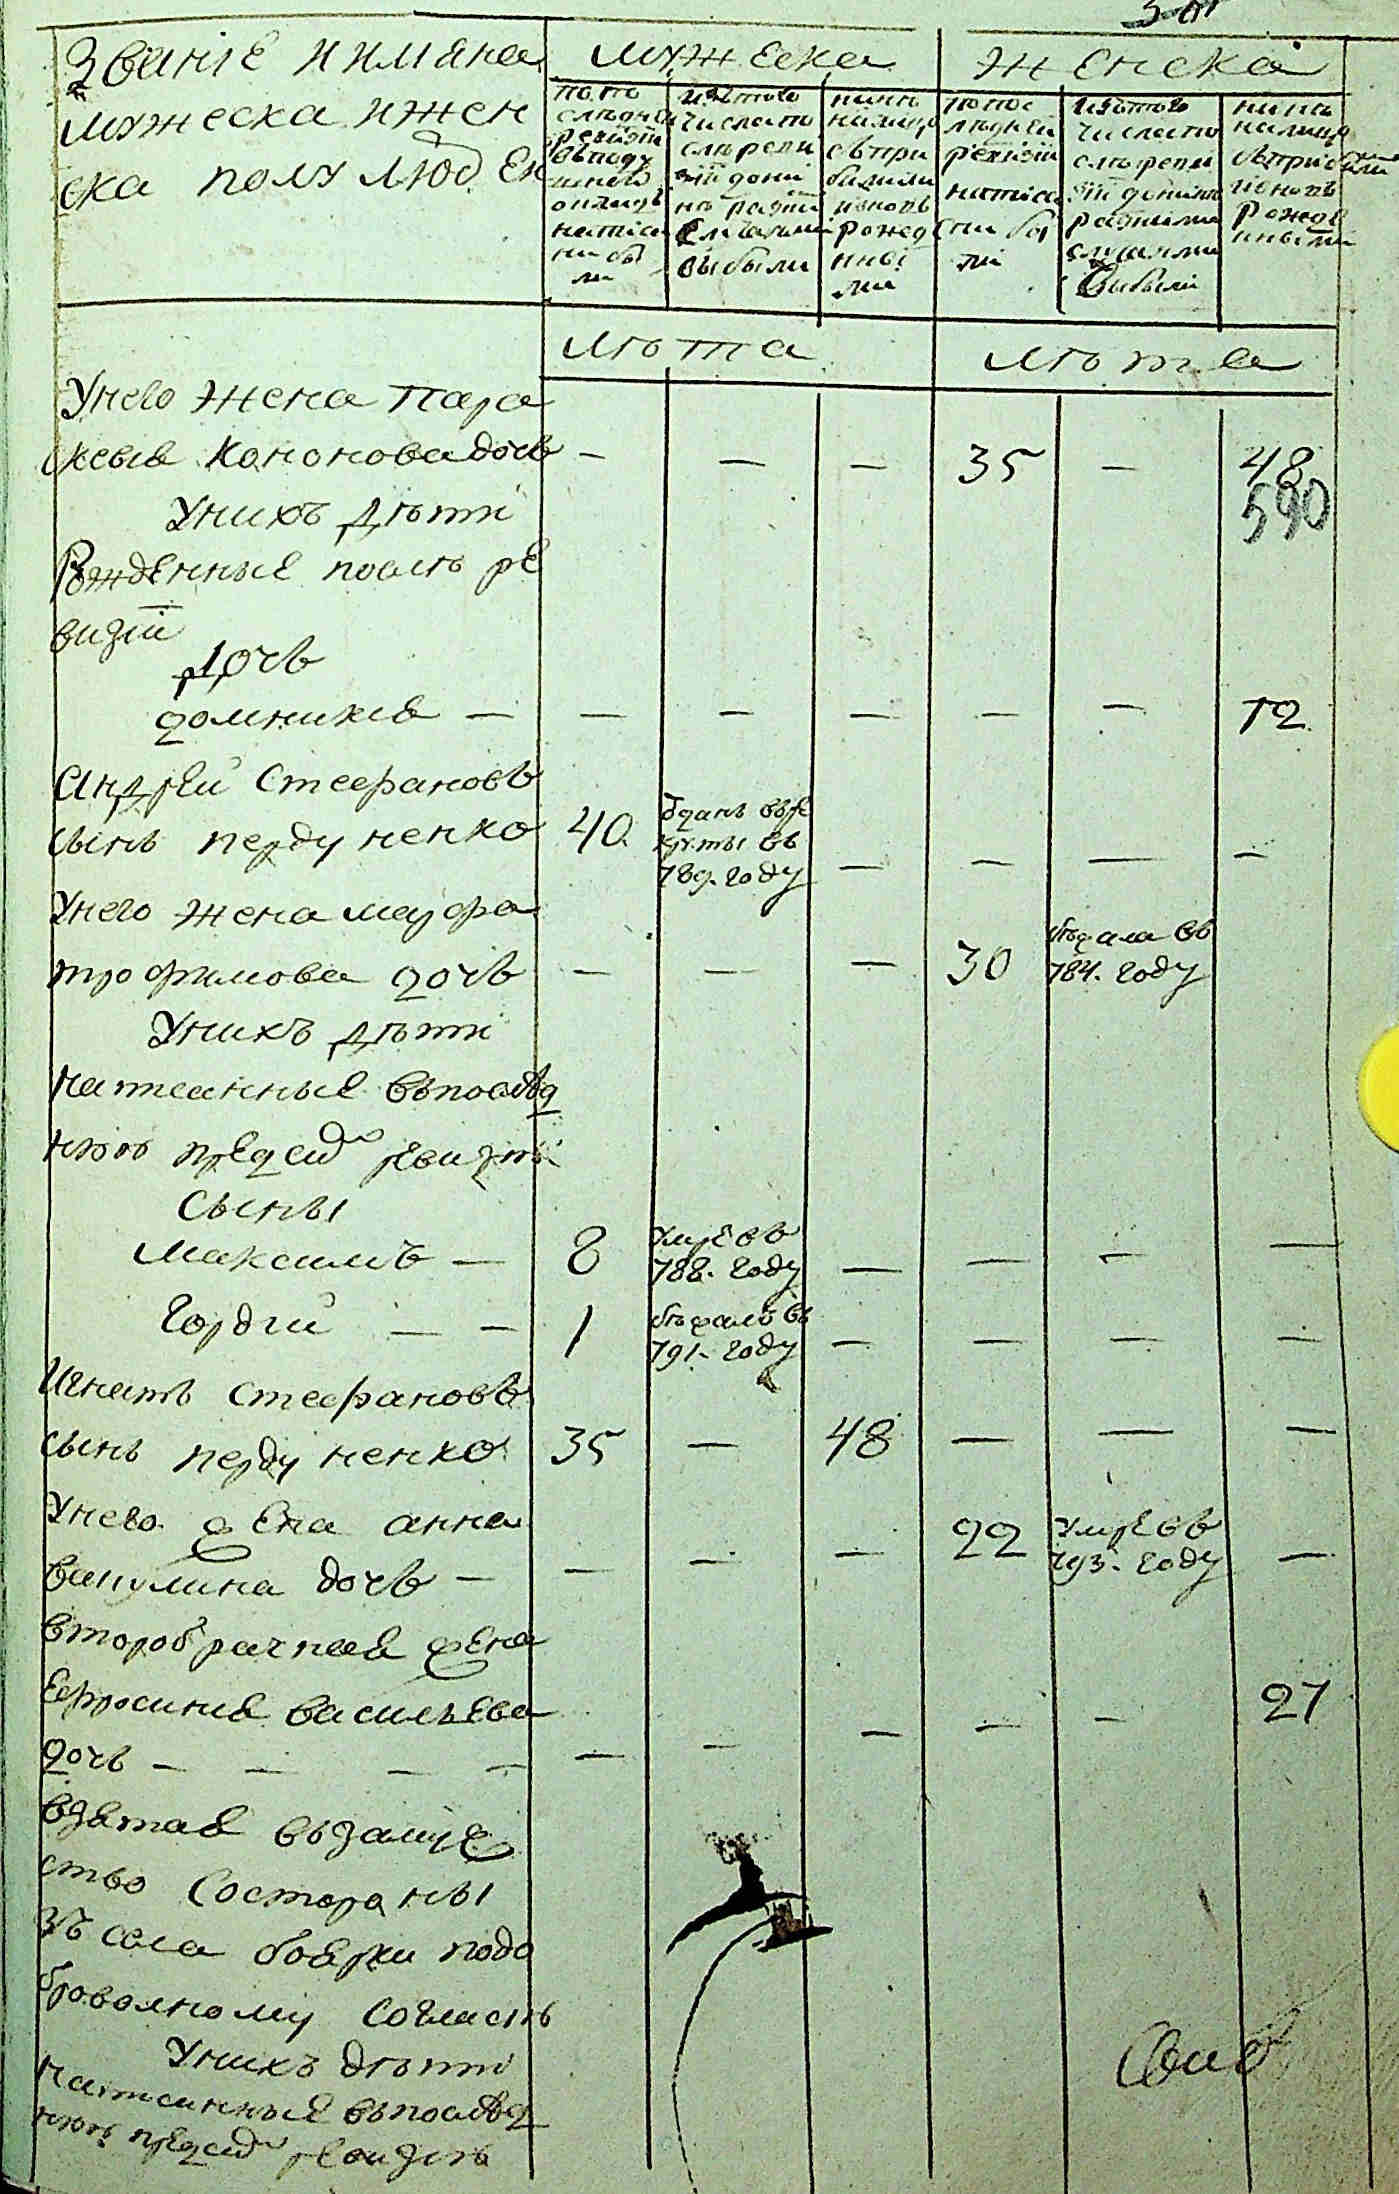 Званіе и имяна
мужеска и жен
ска полу людей
мужеска
женска
по по
слѣдней
ревизіи
въ поду
шной
окладъ
написа
ни бы
ли
изъ того
числа по
слѣ реви
зіи до ни
нѣ разни
ми случаями
выбыли
нинѣ
на лицо
съ при
былыми
и новъ
рожед
нны
ми
по пос
лѣдней
ревизіи
написа
ни бы
ли
изъ того
числа по
слѣ реви
зіи до нинѣ
разними
случаями
выбыли
нинѣ
на лицо
съ прибылими
и новъ
рожед
нными
лѣта
лѣта
У него жена Пара
скевия Кононова дочь — — — 35 — 48
590
У нихъ дѣти
Рожденные послѣ ре
визіи
Дочь
Домникия — — — — — — 12
Андрей Стефановъ
сынъ Пердуненко 40 — — — —
Отданъ въ ре
круты въ
789. году
У него жена Мауфра
Трофимова дочь — — — 30
бѣжала въ
784. году
У нихъ дѣти
написанные въ послѣд
нюю предъ симъ ревизію
Сыны
Максимъ — 8 — — — —
умре въ
788. году
Гордій — — 1 — — — —
бѣжалъ въ
791. году
Игнатъ Стефановъ
сынъ Пердуненко 35 — 48 — — —
У него жена Анна
Вакулина дочь — — — — 22 —
умре въ
793. году
второбрачная жена
Ефросиния Васильева
дочь — — — — — — — — — 27
взятая въ замуже
ство состороны
зъ села Боярки по до
бровольному согласию
У нихъ дѣти
написанные въ послѣд
нюю предъ симъ ревизію